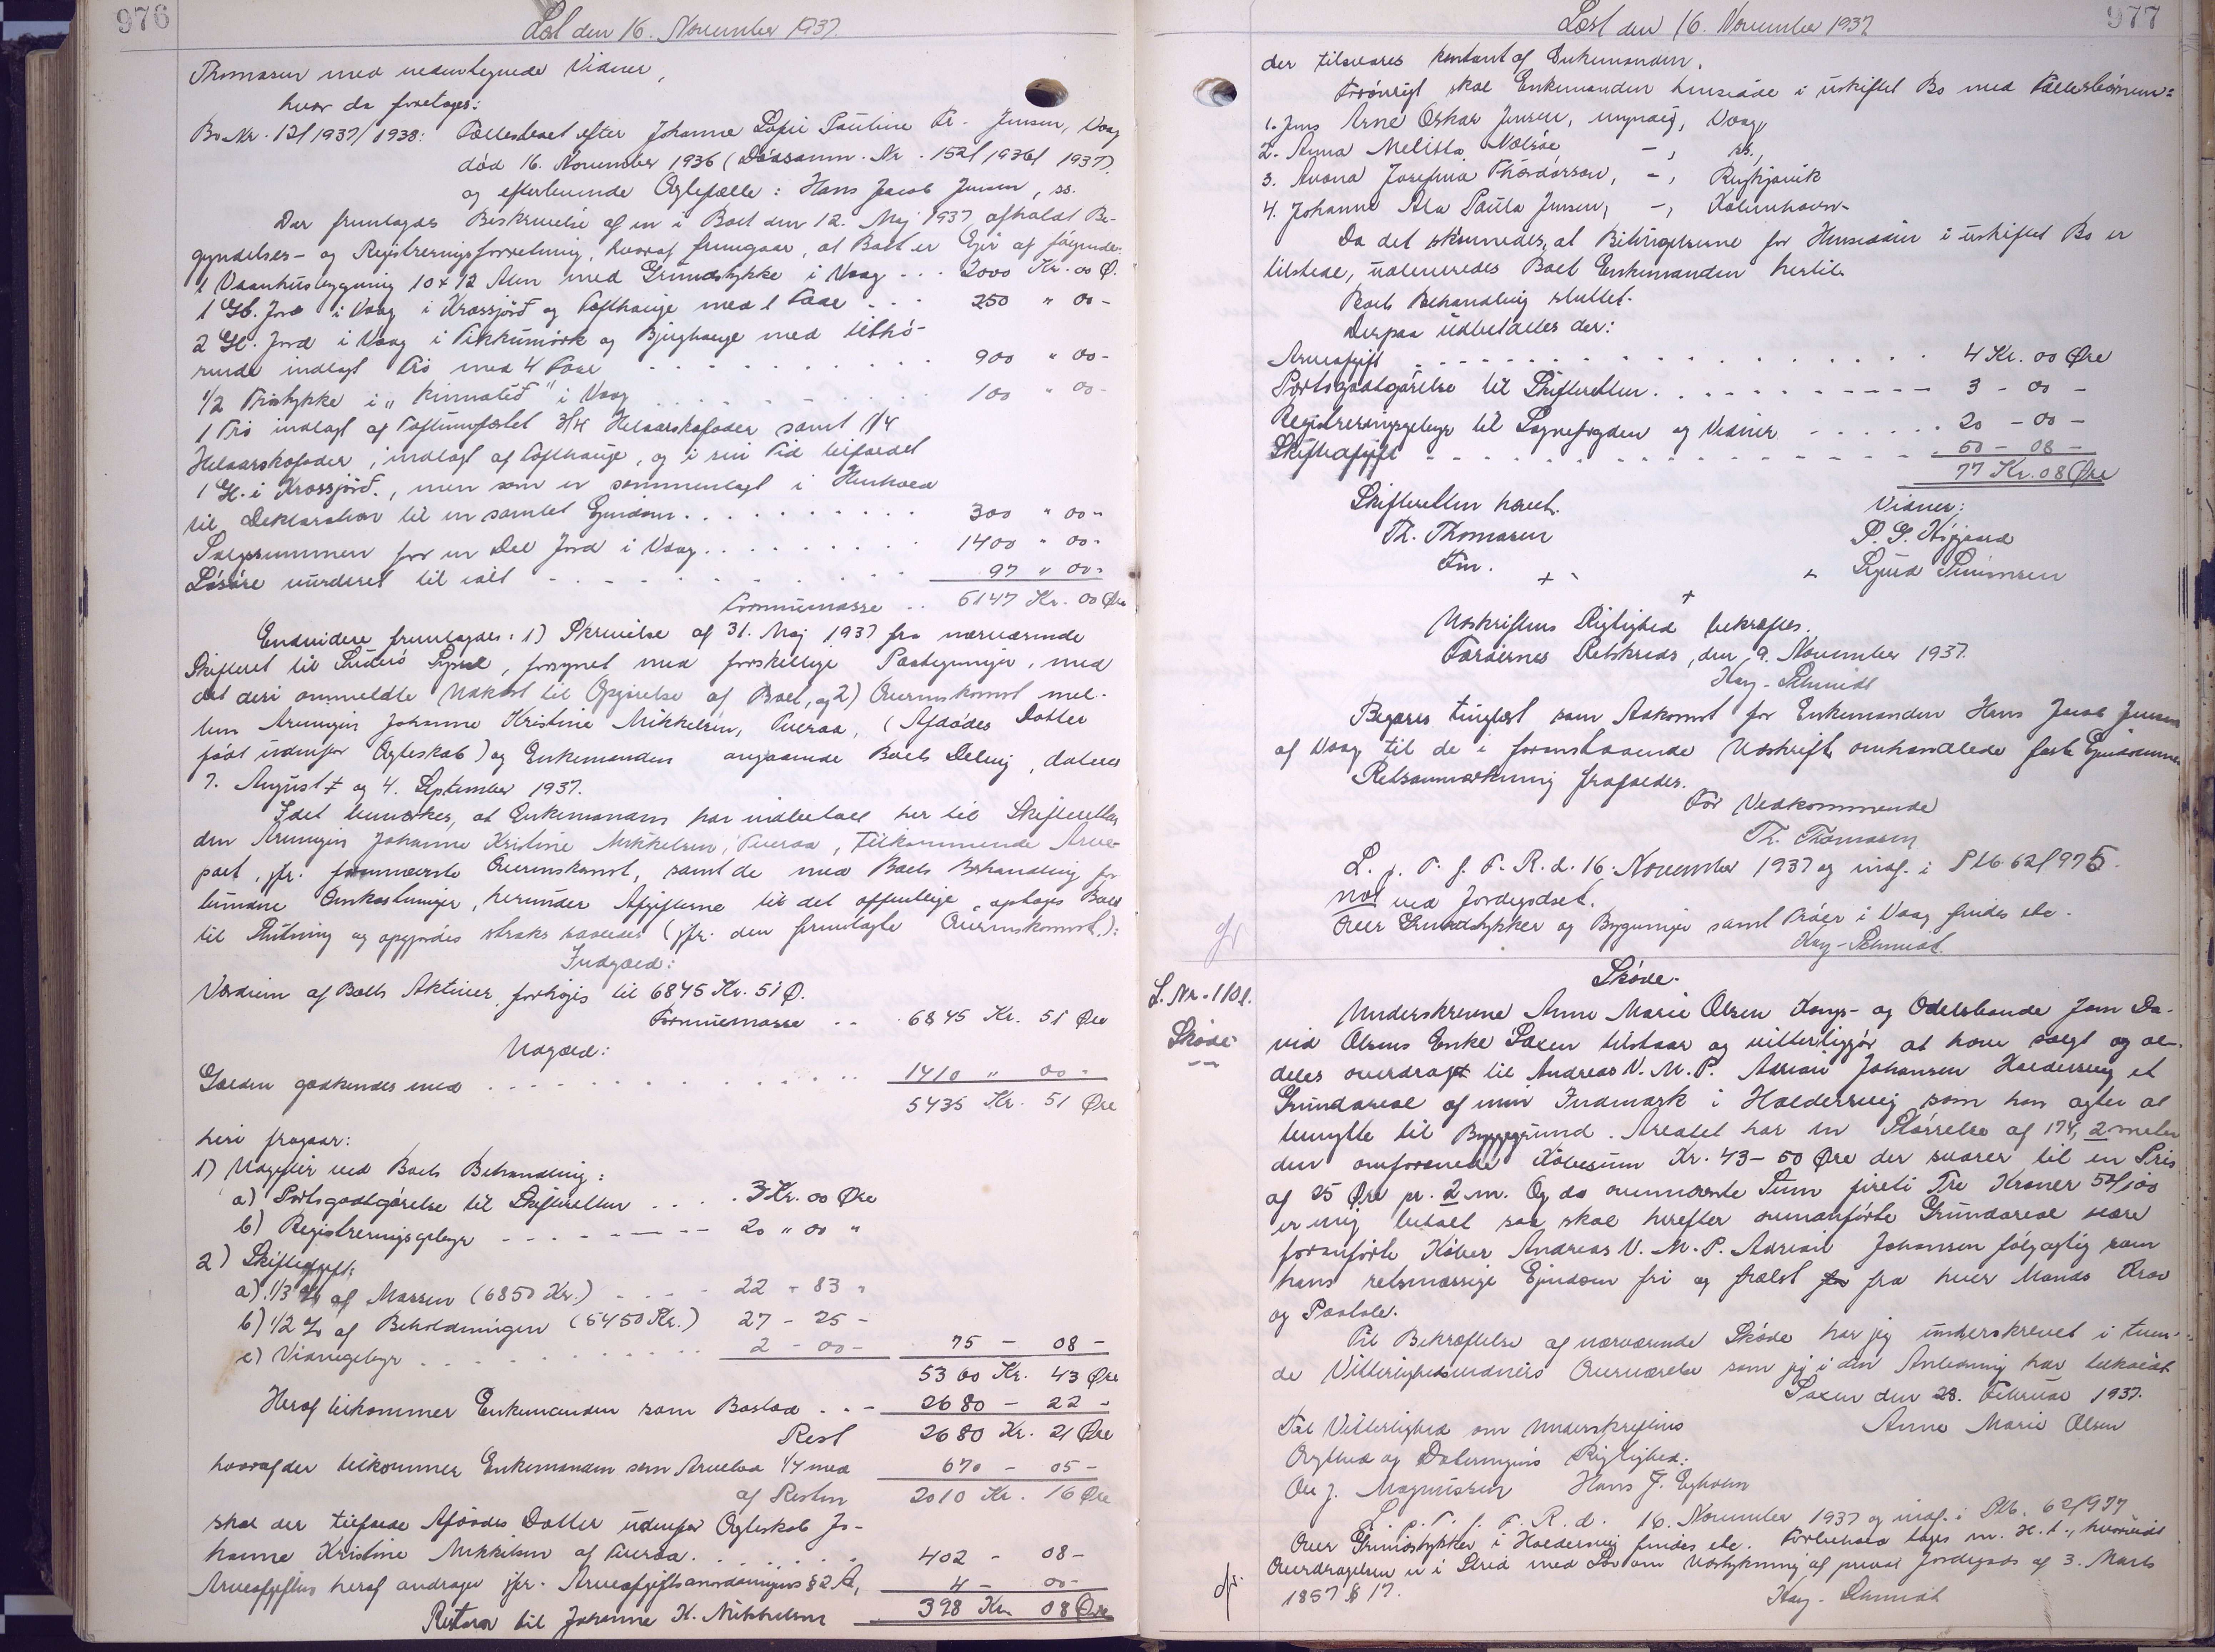 976
Læst den 16. November 1937.
Thomasen med undertegnede Vidner,
hvor da foretoges:
Bo Nr. 12/1937/1938: Fællesboet efter Johanne Sofie Pauline Kr. Jensen, Vaag
død 16. November 1936 (Dødsanm. Nr. 152/1936/1937).
og efterlevende Ægtefælle: Hans Jacob Jensen, ss.
Der fremlagdes Beskrivelse af en i Boet den 12. Maj 1937 afholdt Be-
gyndelses- og Registreringsforretning, hvoraf fremgaar, at Boet er Ejer af følgende:
1 Vaanhusbygning 10 x 12 Alen med Grundstykke i Vaag . . . 2000 Kr. 00 Ø.
1 Gl. Jord i Vaag i Krossjørd og Tofthauge med 1 Faar . . . 250 " 00 -
2 Gl. Jord i Vaag i Tikkumørk og Bjughauge med tilhø-
rende indlagt Trø med 4 Faar . . . . . . . . 900 " 00 -
1/2 Trøstykke i "Rinnatrø" i Vaag . . . . . . . 100 " 00 -
1 Trø indlagt af 3/4 Helaarskofoder samt 1/4
Helaarskofoder, indlagt af Tofthauge, og i sin Tid tilfaldet
1 Gl. i Krossjørd., men som er sammenlagt i Henhold
til Deklaration til en samlet Ejendom. . . . . . . . . 300 " 00 -
Salgssummen for en Del Jord i Vaag. . . . . . . . . 1400 " 00 -
Løsøre vurderet til ialt - - - - - - - - 97 " 00 -
Formuemasse . . 6147 Kr. 00 Øre
Endvidere fremlagdes: 1) Skrivelse af 31. Maj 1937 fra nærværende
Skifteret til Suderø Syssel, forsynet med forskellige Paategninger, med
det deri ommeldte Udkast til Opgørelse af Boet, og 2) Overenskomst mel-
lem Arvingen Johanne Kristine Mikkelsen, Tveraa, (Afdødes Datter
født udenfor Ægteskab) og Enkemanden angaaende Boets Deling, dateret
7. August og 4. September 1937.
Idet bemærkes, at Enkemanden har indbetalt her til Skifteretten
den Arvingen Johanne Kristine Mikkelsen, Tveraa, tilkommende Arve-
part, jfr. fornævnte Overenskomst, samt de med Boets Behandling for
bundne Omkostninger, herunder Afgifterne til det offentlige, optoges Boet
til Slutning og opgjordes straks saaledes (jfr. den fremlagte Overenskomst.):
Indgæld:
Værdien af Boets Aktiver, forhøjes til 6845 Kr. 51 Ø.
Formuemasse . . 6845 Kr. 51 Øre
Udgæld:
Gælden godkendes med . . . . . . . . . . . . . 1410 " 00 -
5435 Kr. 51 Øre
heri fragaar:
1) Udgifter ved Boets Behandling:
a) Portogodtgørelse til Skifteretten . . . . 3 Kr. 00 Øre
b) Registreringsgebyr - - - - - - - 20 " 00 "
2) Skifteafgift:
a) 1/3 % af Massen (6850 Kr.) - - - - 22 - 83 -
b) 1/2 % af Beholdningen (5450 Kr.) 27 - 25 -
c) Vidnegebyr . . . . . . . . . . . . 2 - 00 - 75 - 08 -
5360 Kr. 43 Øre
Heraf tilkommer Enkemanden som Boslod . . - 2680 - 22 -
Rest 2680 Kr. 21 Øre
hvoraf der tilkommer Enkemanden som Arvelod 1/4 med 670 - 05 -
af Resten 2010 Kr. 16 Øre
skal der tilfalde Afdødes Datter udenfor Ægteskab Jo-
hanne Kristine Mikkelsen af Tveraa. . . . . . . . 402 - 08 -
Arveafgiften heraf andrager jfr. Arveafgiftsanordningens § 2 A, 4 - 00 -
Resterer til Johanne K. Mikkelsen 398 Kr. 08 Øre
977
Læst den 16. November 1937
der tilsvares kontant af Enkemanden.
Forøvrigt skal Enkemanden hensidde i uskiftet Bo med Fællesbørnene:
1. Jens Arne Oskar Jensen, myndig, Vaag,
2. Anna Melitta Nolsøe -, ss.,
3. Avona Josefina Thordarson, -, Reykjavik
4. Johanne Ala Paula Jensen, -, København.
Da det skønnedes, at Betingelserne for Hensidden i uskiftet Bo er
tilstede, udleveredes Boet Enkemanden hertil.
Boets Behandling sluttet.
Derpaa udbetaltes der:
Arveafgift . - - - - - - . . . . . . . . . 4 Kr. 00 Øre
Portogodtgørelse til Skifteretten. . . . . - - - - - 3 - 00 -
Registreringsgebyr til Sognefogden og Vidner - - - - . . . 20 - 00 -
Skifteafgift - - - - - . . . . . . - - - - - . 50 - 08 -
77 Kr. 08 Øre
Skifteretten hævet. Vidner:
Th. Thomasen P. G. Højgaard
Fm. Sigurd Simonsen
Udskriftens Rigtighed bekræftes.
Færøernes Retskreds, den 9. November 1937.
Kay-Schmidt
Begæres tinglæst som Adkomst for Enkemanden Hans Jacob Jensen
af Vaag til de i foranstaaende Udskrift omhandlede faste Ejendomme
Retsanmærkning frafaldes.
For Vedkommende
Th. Thomasen
L. p. T. f. F. R. d. 16. November 1937 og indf. i Ptb. 62/975.
not ved Jordegodset.
Over Grundstykker og Bygninger samt Trøer i Vaag findes etc.
Kay-Schmidt.
L. Nr. 1101.
Skøde
Skøde.
Underskrevne Anne Marie Olsen Kongs- og Odelsbonde Joen Da-
vid Olsens Enke Saxen tilstaar og vitterliggjør at have solgt og al-
deles overdraget til Andreas V. M. P. Adriari Johansen Haldersvig et
Grundareal af min Indmark i Haldersvig som han agter at
benytte til Byggegrund. Arealet har en Størrelse af 174, 2 meter
den omforenede Købesum Kr. 43 - 50 Øre der svarer til en Pris
af 25 Øre pr. 2 m. Og da ovennævnte Sum fireti Tre Kroner 50/100
er mig betalt saa skal herefter ovenanførte Grundareal være
foranførte Køber Andreas V. M. P. Adriari Johansen følgagtig som
hans retsmæssige Ejendom fri og frelst fra hver Mands Krav
og Paatale.
Til Bekræftelse af nærværende Skøde har jeg underskrevet i tven-
de Vitterlighedsvidners Overværelse som jeg i den Anledning har tilkaldt
Saxen den 28. Februar 1937.
Til Vitterlighed om Underskriftens Anne Marie Olsen
Ægthed og Dateringens Rigtighed:
Ole J. Magnussen Hans J. Egholm
L. p. T. f. F. R. d. 16. November 1937 og indf. i Ptb. 62/977
Over Grundstykker i Haldersvig findes etc. Forbehold tages m. H. t., hvorvidt
Overdragelsen er i Strid med Lov om Udstykning af privat Jordegods af 3. Marts
1857 § 17.
Kay-Schmidt